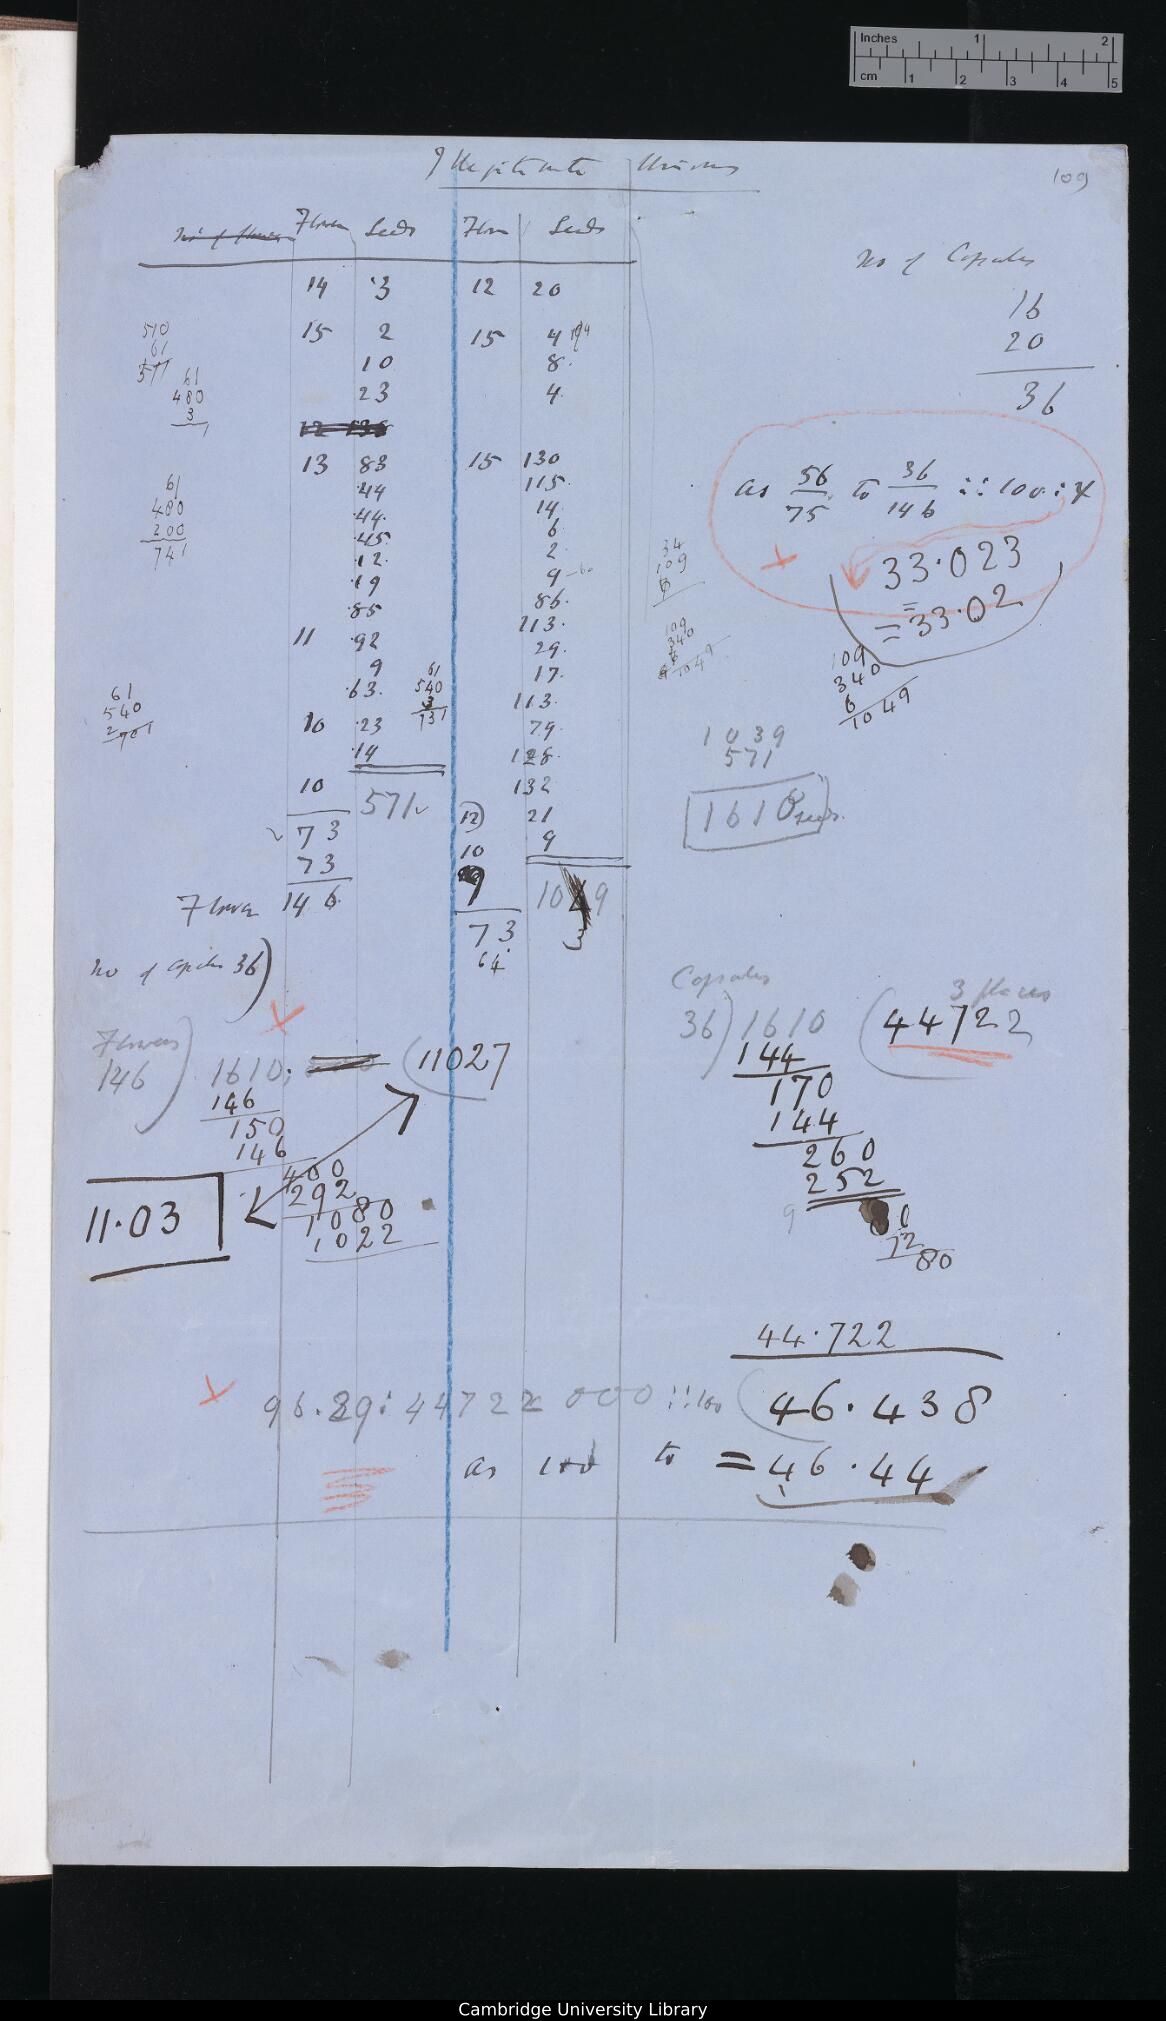 Inches 1 2
cm 1 2 3 4 5
109
Illegitimate Unions
No of flowers Flowers Seeds Flow Seeds
14 3 12 20
15 2 15 4
10 8
23 4
13 83 15 130
44 115
44 14
45 6
12 2
19 9
85 86
11 92 213
9 29
63 17
10 23 113
14 79
10 128
132
571 12 21
73 10 9
73 9
Flowers 146 73 1039
64
No of Capsules 36)
510
61
571
61
480
3
61
480
200
741
61
540
2
701
61
540
3
731
No of Capsules
16
20
36
as 56/75 to 36/146 :: 100 : x
33.023
= 33.02
34
109
6
109
340
6
1049
109
340
6
1049
1039
571
1610 seeds
Flowers
146) 1610; (11027
146
150
146
400
292
1080
1022
11.03
Capsules 3 places
36) 1610 (44722
144
170
144
260
252
80
72
80
9
44.722
96.29 : 44722 000 :: 100 (46.438
as 100 to = 46.44
Cambridge University Library